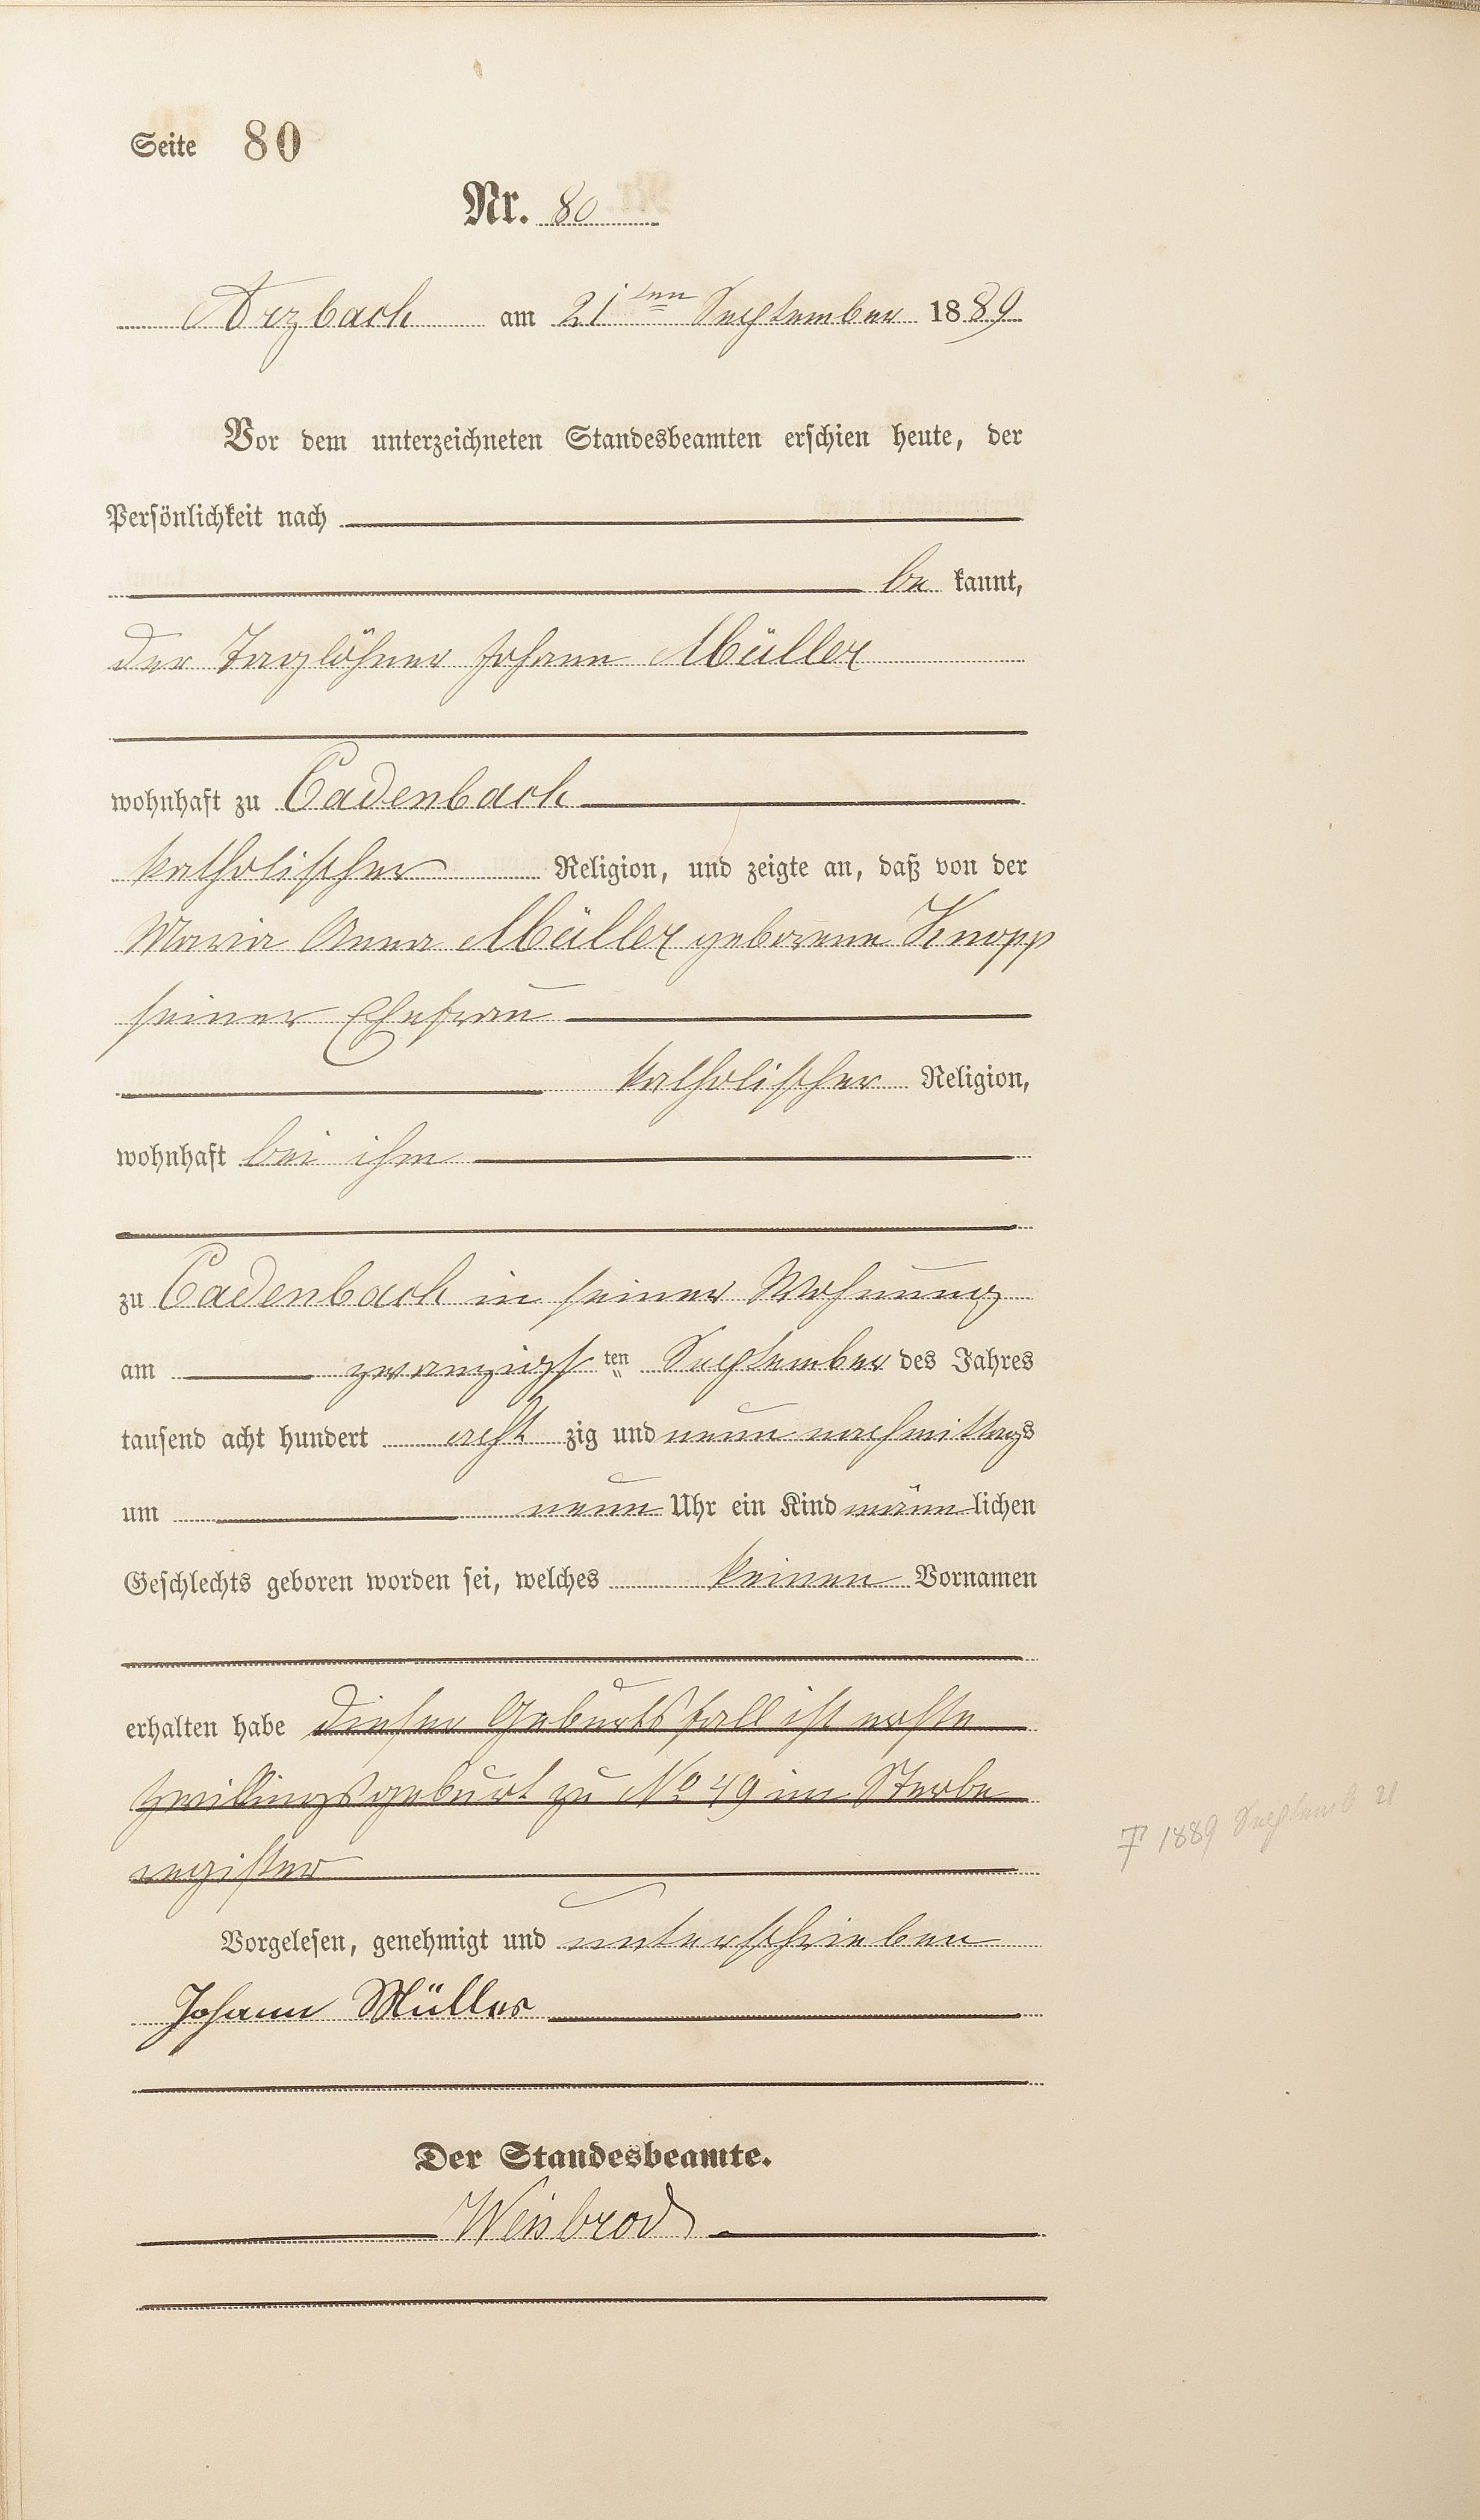 Seite 80
Nr. 80
Arzbach am 21ten September 1889
Vor dem unterzeichneten Standesbeamten erschien heute, der
Persönlichkeit nach
be kannt,
der Taglöhner Johann Müller
wohnhaft zu Cadenbach
katholischer Religion, und zeigte an, daß von der
Maria Anna Müller geborene Knopp
seiner Ehefrau
katholischer Religion,
wohnhaft bei ihm
zu Cadenbach in seiner Wohnung
am zwanzigsten September des Jahres
tausend acht hundert acht zig und neun nachmittags
um neun Uhr ein Kind männlichen
Geschlechts geboren worden sei, welches keinen Vornamen
erhalten habe dieser Geburtsfall ist erste
Zwillingsgeburt zu No 49 im Sterbe
register
Vorgelesen, genehmigt und unterschrieben
Johann Müller
Der Standesbeamte.
Weisbrod
† 1889 Septemb 21